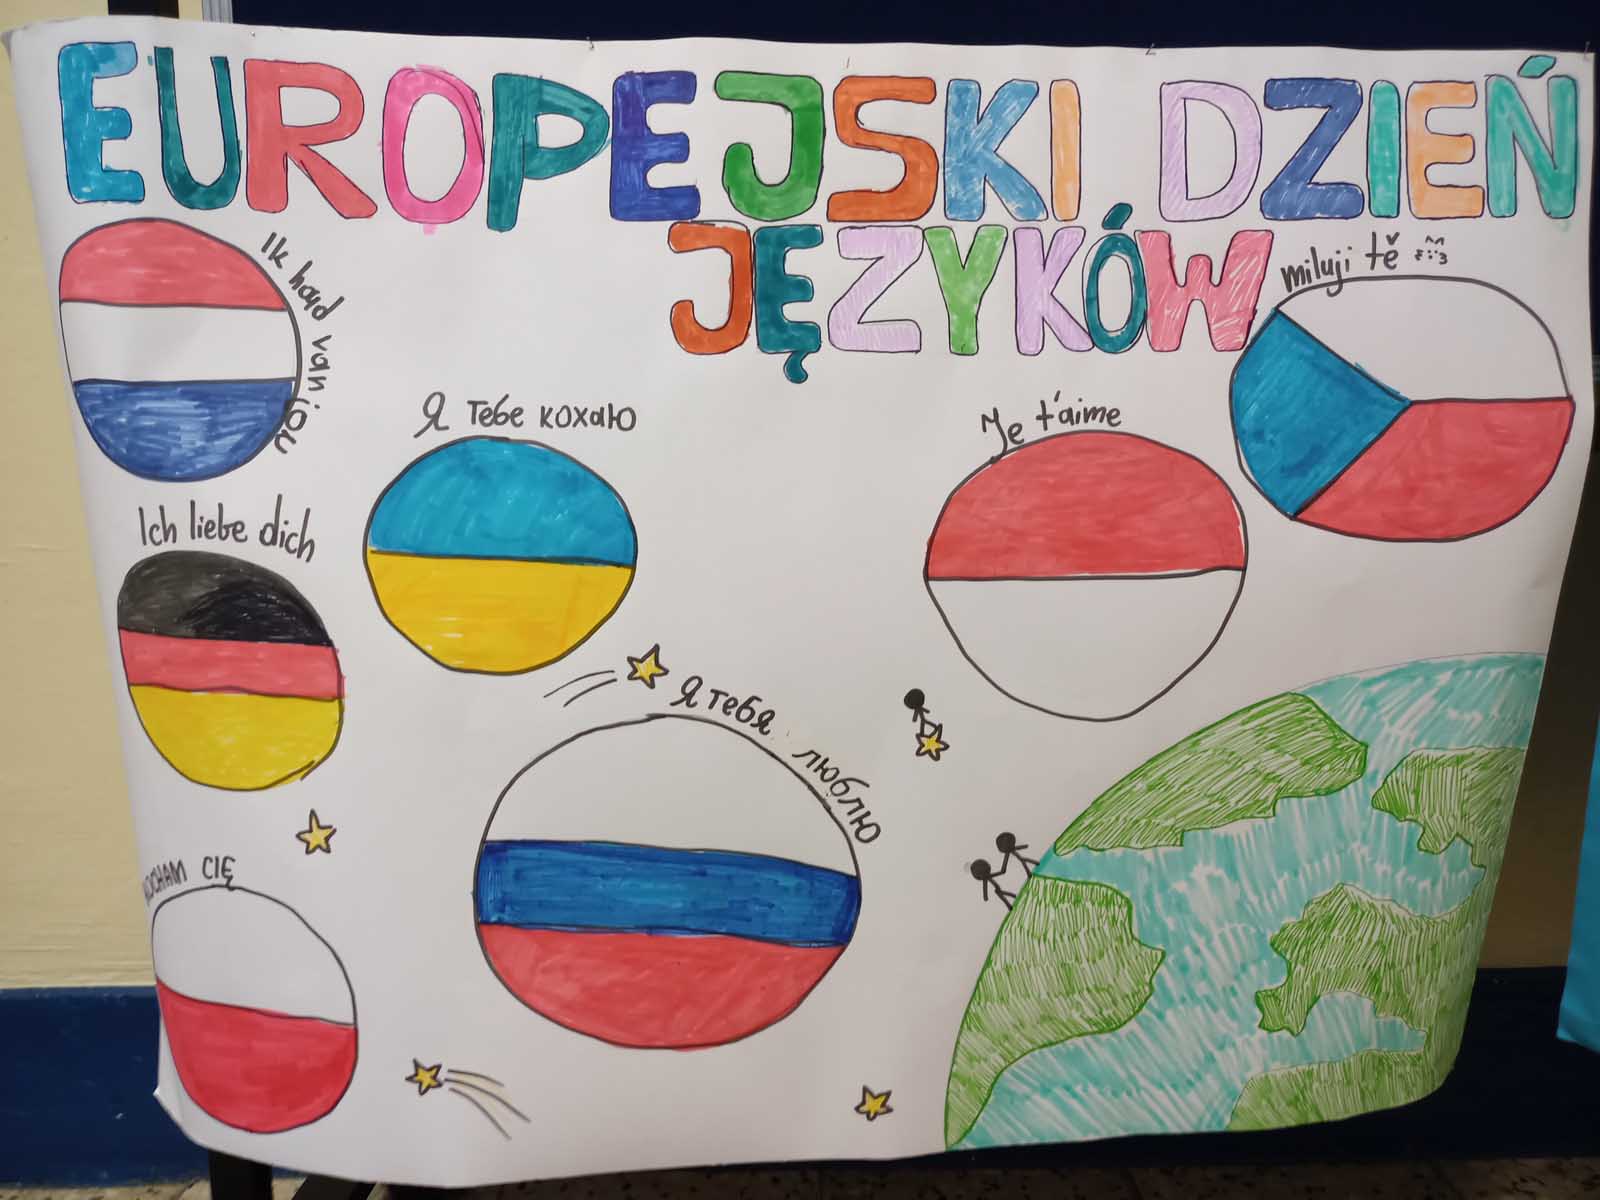 EUROPEJSKI DZIEŃ
JĘZYKÓW
Ik hard van jou
miluji tě
Я тебе кохаю
Je t'aime
Ich liebe dich
Я тебя люблю
KOCHAM CIĘ